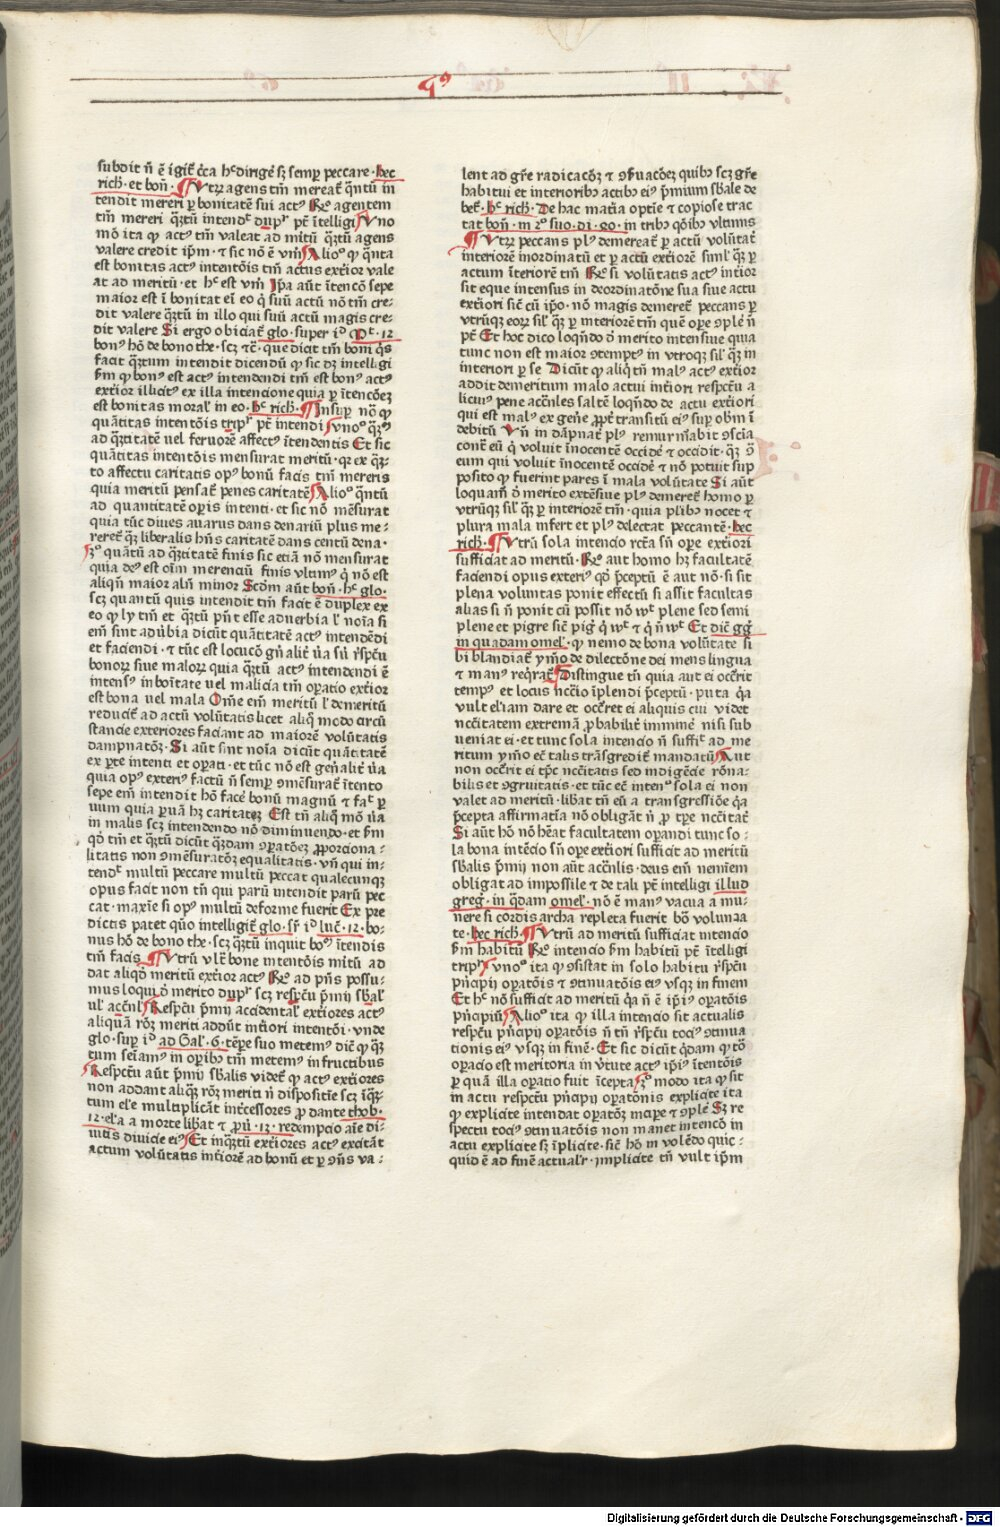 q⁹
subdit n̄ ē igit̄ c̄ca hᶜ dirigē sꝫ semꝑ peccare · hec
rich̄ · et bon̄ · Vtꝝ agens tm̄ mereat̄ q̄ntū in
tendit mereri ꝑ bonitatē sui actꝰ Rº agentem
tm̄ mereri q̄ꝫtū intendᵗ dupʳ pt̄ ītelligi Vno
mō ita ꝙ actꝰ tm̄ valeat ad mitū q̄ꝫtū agens
valere credit ip̄m · ⁊ sic nō ē vm̄ Alioº ꝙ q̄nta
est bonitas actꝰ intentōis tm̄ actus ext̄ior vale
at ad meritū · et hᶜ est vm̄ Ip̄a aūt ītencō sepe
maior est ī bonitat ei eo q̄ suū actū nō tm̄ cre⸗
dit valere q̄ꝫtū in illo qui suū actū magis cre⸗
dit valere Si ergo obiciat̄ glo · super iᵈ Mᵗ · 12
bonꝰ hō de bono the · scꝫ ⁊c̄ · que dicit tm̄ boni q̄s
facit q̄ꝫtum intendit dicendū ꝙ sic dꝫ intelligi
ẜm ꝙ bonꝰ est actꝰ intendendi tm̄ est bonꝰ actꝰ
ext̄ior illicitꝰ ex illa intencione quia ꝑ ītencōeꝫ
est bonitas moral̄ in eo · hᶜ rich̄ · Insuꝑ nō ꝙ
quātitas intentōis tripʳ pt̄ intendi Vnoº q̄ꝫº
ad q̄ꝫtitatē uel feruorē affectꝰ ītendentis Et sic
quātitas intentōis mensurat meritū · qꝛ ex q̄ꝫ⸗
to affectu caritatis opꝰ bonū facis tm̄ mereris
quia meritū pensat̄ penes caritatē Alioº q̄ntū
ad quantitatē oꝑis intenti · et sic nō mēsurat
quia tūc diues auarus dans denariū plus me⸗
reret̄ q̄ꝫ liberalis hn̄s caritatē dans centū dena ·
3º quātū ad q̄ꝫtitatē finis sic etiā nō mensurat
quia deꝰ est oīm merenciū finis vltimꝰ q̄ nō est
aliqn̄ maior aln̄ minor Scdm̄ aūt bon̄ · hᶜ glo ·
scꝫ quantū quis intendit tm̄ facit ē duplex ex
eo ꝙ ly tm̄ et q̄ꝫtū pn̄t esse aduerbia l̄ noīa si
em̄ sint adūbia dicūt quātitatē actꝰ intendēdi
et faciendi · ⁊ tūc est locucō gn̄alit̄ v̄a siū r̄spc̄tu
bonoꝝ siue maloꝝ quia q̄ꝫtū actꝰ intendendi ē
intensꝰ in boītate uel malicia tm̄ oꝑatio ext̄ior
est bona uel mala Om̄e em̄ meritū l̄ demeritū
reducit̄ ad actū volūtatis licet aliq̄ modo circū
stancie exteriores faciant ad maiorē volūtatis
dampnatōꝫ · Si aūt sint noīa dicūt quātitatē
ex ꝑte intenti et oꝑati · et tūc nō est gen̄alit̄ v̄a
quia opꝰ exteriꝰ factū n̄ semꝑ ꝯmēsurat̄ ītento
sepe em̄ intendit hō facē bonū magnū ⁊ facᵗ ꝑ
uum quia ꝑuā hꝫ caritateꝫ Est tn̄ aliq̄ mō v̄a
in malis scꝫ intendendo nō diminuendo · et ẜm
qd̄ tm̄ et q̄ꝫtū dicūt q̄ꝫdam ꝯꝑatōeꝫ ꝓporciona⸗
litatis non ꝯmēsuratōꝫ equalitatis · vn̄ qui in⸗
tendᵗ multū peccare multū peccat qualecunqꝫ
opus facit non tn̄ qui parū intendit parū pec
cat · maxīe si opꝰ multū deforme fuerit Ex pre
dictis patet quō intelligit̄ glo · sr̄ iᵈ luc̄ · 12 · bo⸗
nus hō de bono the · scꝫ q̄ꝫtū inquit boⁿ ītendis
tm̄ facis Vtrū vl̄t bone intentōis mitū ad
dat aliqd̄ meritū ext̄ior actꝰ Rº ad pn̄s possu⸗
mus loqui ō merito dupʳ scꝫ respc̄tu p̄mij sb̄al̄
ul̄ accn̄l̄ Respc̄tu p̄mij accidental̄ ext̄iores actꝰ
aliquā rōꝫ meriti addūt int̄iori intentōi · vnde
glo · suꝑ iᵈ ad Gal̄ · 6 · tēꝑe suo metemꝰ dic̄ ꝙ q̄ꝫ
tum seīamꝰ in oꝑibꝰ tm̄ metemꝰ in fructibus
Respc̄tu aūt p̄mij sb̄alis videt̄ ꝙ actꝰ ext̄iores
non addant aliq̄ꝫ rōꝫ meriti n̄ dispositīe scꝫ īq̄ꝫ⸗
tum ele multiplicāt int̄cessores ꝓ dante thob ·
12 · el̄a a morte lib̄at ⁊ ꝓu̅ · 13 · redempcio aīe di⸗
uitis diuicie eiꝰ Et inq̄ꝫtū ext̄iores actꝰ excitāt
actum volūtatis int̄iorē ad bonū et ꝑ ꝯn̄s va⸗
lent ad gr̄e radicacōꝫ ⁊ ꝯẜuacōeꝫ quibꝰ scꝫ gr̄e
habitui et interioribꝰ actibꝰ eiꝰ p̄mium sb̄ale de
bet̄ · hᶜ rich̄ · De hac matīa optīe ⁊ copiose trac
tat bon̄ · in 2º suo · di · 40 · in tribꝰ qōibꝰ vltimis
Vtꝝ peccans plꝰ demereat̄ ꝑ actū volūtat̄
interiorē inordinatū et ꝑ actū exteriorē siml̄ q̄ꝫ ꝑ
actum īteriorē tm̄ Rº si volūtatis actꝰ int̄ior
sit eque intensus in deordinatōne sua siue actu
ext̄iori sic̄ cū ip̄o · nō magis demeret̄ peccans ꝑ
vtrūqꝫ eoꝝ sil̄ q̄ꝫ ꝑ interiorē tm̄ quē oꝑe ꝯplē n̄
pt̄ Et hoc dico loqn̄do ō merito intensiue quia
tunc non est maior ꝯtemptꝰ in vtroqꝫ sil̄ q̄ꝫ in
interiori ꝑ se Dicūt ꝙ aliq̄ tn̄ malꝰ actꝰ ext̄ior
addit demeritum malo actui int̄iori respc̄tu a
licuiꝰ pene accn̄les saltē loqn̄do de actu ext̄iori
qui est malꝰ ex gen̄e ꝓpt̄ transitū eiꝰ suꝑ obm̄ ī
debitū Vn̄ in dāpnat̄ plꝰ remurm̄abit ꝯsc̄ia
cont̄ eū q̄ voluit īnocentē occidē ⁊ occidit · q̄ꝫ ꝯ̄
eum qui voluit īnocentē occidē ⁊ nō potuit sup
posito ꝙ fuerint pares ī mala volūtate Si aūt
loquam̄ ō merito extēsiue plꝰ demeret̄ homo ꝑ
vtrūqꝫ sil̄ q̄ꝫ ꝑ interiorē tm̄ · quia plibꝰ nocet ⁊
plura mala infert et plꝰ delectat peccantē · hec
rich̄ · Vtrū sola intencio rc̄ta sn̄ oꝑe ext̄iori
sufficiat ad meritū · Rº aut homo hꝫ facultatē
faciendi opus exteriꝰ qd̄ p̄ceptū ē aut nō · si sit
plena voluntas ponit effectū si assit facultas
alias si n̄ ponit cū possit nō wᵗ plene sed semi
plene et pigre sic̄ piḡ q̄ wᵗ ⁊ q̄ n̄ wᵗ Et dic̄ gg̅
in quadam omel̄ · ꝙ nemo de bona volūtate si
bi blandiat̄ ymō de dilectōne dei mens lingua
⁊ manꝰ req̄rat̄ Distingue tn̄ quia aut ei occ̄rit
tempꝰ et locus nc̄c̄io īplendi p̄ceptū · puta q̄a
vult el̄iam dare et occ̄ret ei aliquis cui videt
nc̄c̄itatem extremā ꝓbabilit̄ imminē nisi sub
ueniat ei · et tunc sola intencio n̄ suffic̄ᵗ ad me
ritum ymō ec̄ talis trāsgredit̄ mandatū Aut
non occ̄rit ei tꝑe nc̄c̄itatis sed indigēcie rōna⸗
bilis et ꝯgruitatis · et tūc ec̄ intenº sola ei non
valet ad meritū · libat tn̄ eū a transgressiōe q̄a
p̄cepta affirmatīa nō obligāt n̄ ꝓ tꝑe nc̄c̄itat̄
Si aūt hō nō hēat facultatem oꝑandi tunc so⸗
la bona intēcio sn̄ oꝑe ext̄iori sufficit ad meritū
sb̄alis p̄mij non aūt accn̄lis · deus em̄ nem̄iem
obligat ad impossile ⁊ de tali pt̄ intelligi illud
greg̅ · in q̄dam omel̄ · nō ē manꝰ vacua a mu⸗
nere si cordis archa repleta fuerit bō volunta
te · hec rich̄ · Vtrū ad meritū sufficiat intencio
ẜm habitū Rº intencio ẜm habitū pt̄ ītelligi
tripʳ Vnoº ita ꝙ ꝯsistat in solo habitu r̄spc̄tu
pn̄cipij oꝑatōis ⁊ ꝯtinuatōis eiꝰ vsqꝫ in finem
Et hᶜ nō sufficit ad meritū q̄a n̄ ē ip̄iꝰ oꝑatōis
pn̄cipiū Alioº ita ꝙ illa intencio sit actualis
respc̄tu pn̄cipij oꝑatōis n̄ tn̄ r̄spc̄tu tociꝰ ꝯtinua
tionis eiꝰ vsqꝫ in finē · Et sic dicūt q̄dam ꝙ tō
oꝑacio est meritoria in v̄tute actꝰ ip̄iꝰ ītentōis
ꝑ quā illa oꝑatio fuit īcepta 3º modo ita ꝙ sit
in actu respc̄tu pn̄cipij oꝑatōnis explicite ita
ꝙ explicite intendat oꝑatōꝫ īcipe ⁊ ꝯplē Sꝫ re
spectu tociꝰ ꝯtinuatōis non manet intencō in
actu explicite sꝫ īplicite · sic̄ hō in volēdo quic⸗
quid ē ad finē actual̄r · implicite tn̄ vult ip̄m
Digitalisierung gefördert durch die Deutsche Forschungsgemeinschaft · DFG